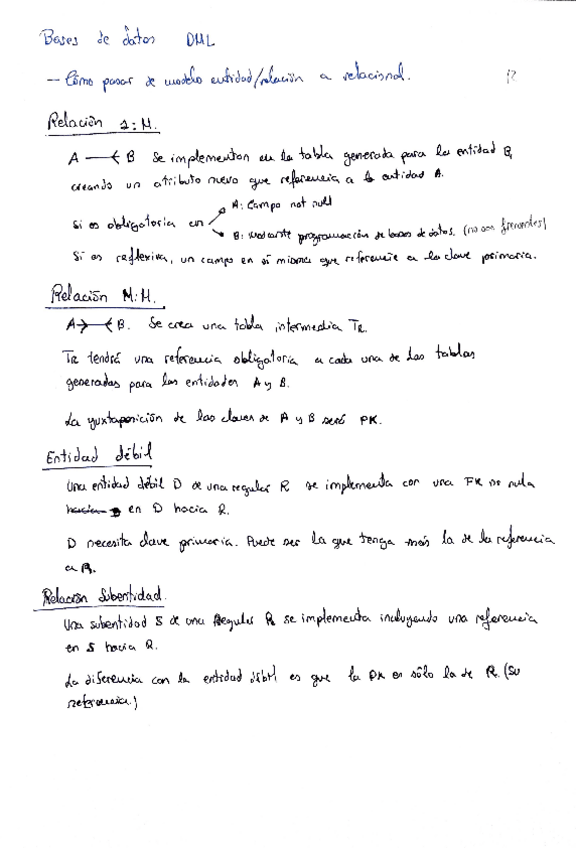 Bases de datos DML
- Cómo pasar de modelo entidad/relación a relacional.
Relación 1:M.
A B Se implementan en la tabla generada para la entidad B,
creando un atributo nuevo que referencia a la entidad A.
Si es obligatoria en
A: Campo not null
B: mediante programación de bases de datos. (no son frecuentes)
Si es reflexiva, un campo en sí misma que referencie a la clave primaria.
Relación M:M.
A B. Se crea una tabla intermedia TR.
TR tendrá una referencia obligatoria a cada una de las tablas
generadas para las entidades A y B.
La yuxtaposición de las claves de A y B será PK.
Entidad débil
Una entidad débil D de una regular R se implementa con una FK no nula
en D hacia R.
D necesita clave primaria. Puede ser la que tenga más la de la referencia
a R.
Relación Subentidad.
Una subentidad S de una Regular R se implementa incluyendo una referencia
en S hacia R.
La diferencia con la entidad débil es que la PK es sólo la de R. (Su
referencia.)